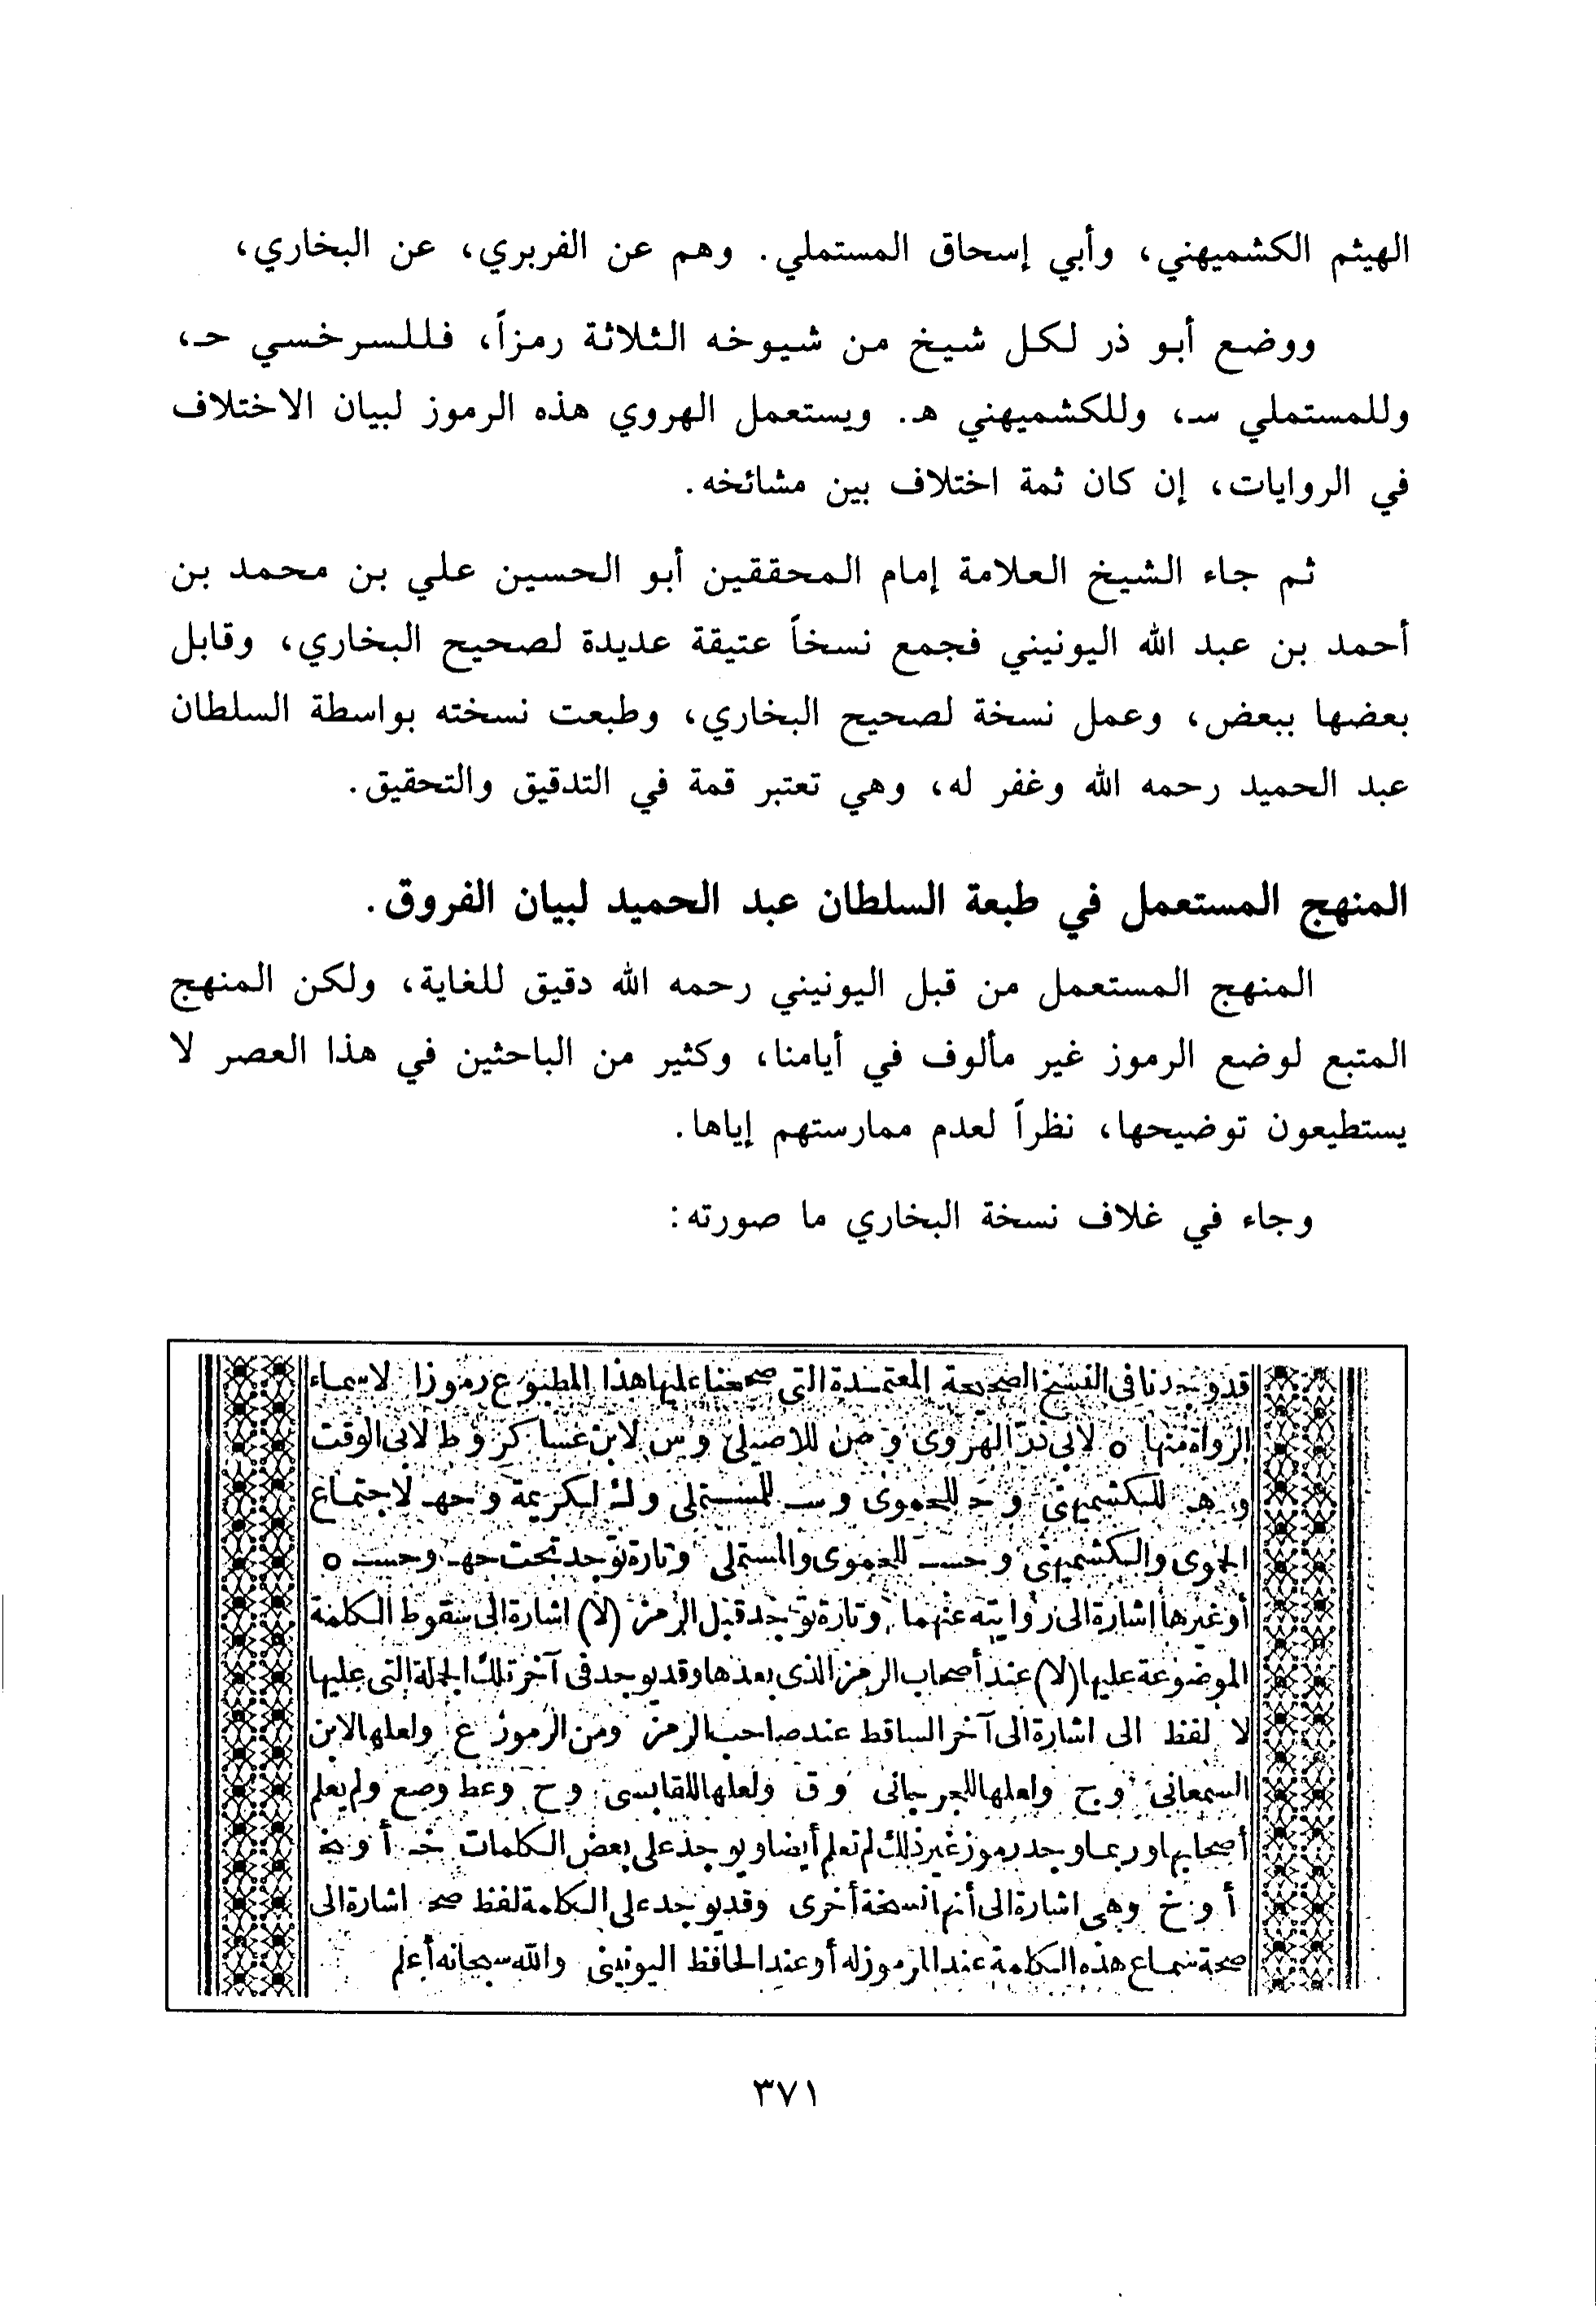 الهيثم الكشميهني، وأبي إسحاق المستملي. وهم عن الفربري، عن البخاري،
ووضع أبو ذر لكل شيخ من شيوخه الثلاثة رمزاً، فللسرخسي حـ،
وللمستملي سـ، وللكشميهني هـ. ويستعمل الهروي هذه الرموز لبيان الاختلاف
في الروايات، إن كان ثمة اختلاف بين مشائخه.
ثم جاء الشيخ العلامة إمام المحققين أبو الحسين علي بن محمد بن
أحمد بن عبد الله اليونيني فجمع نسخاً عتيقة عديدة لصحيح البخاري، وقابل
بعضها ببعض، وعمل نسخة لصحيح البخاري، وطبعت نسخته بواسطة السلطان
عبد الحميد رحمه الله وغفر له، وهي تعتبر قمة في التدقيق والتحقيق.
المنهج المستعمل في طبعة السلطان عبد الحميد لبيان الفروق.
المنهج المستعمل من قبل اليونيني رحمه الله دقيق للغاية، ولكن المنهج
المتبع لوضع الرموز غير مألوف في أيامنا، وكثير من الباحثين في هذا العصر لا
يستطيعون توضيحها، نظراً لعدم ممارستهم إياها.
وجاء في غلاف نسخة البخاري ما صورته:
قد وجدنا في النسخ الصحيحة المعتمدة التي صححنا عليها هذا المطبوع رموزا لاسماء
الرواة منها ه لابي ذر الهروى و ص للاصيلى و س لابن عساكر و ط لابى الوقت
و هـ للكشميهنى و حـ للحموى و سـ للمستملى و ك لكريمة و حهـ لاجتماع
الحموى والكشميهنى و حسـ للحموى والمستملى وتارة توجد تحت حهـ وحسـ ه
أو غيرها اشارة الى روايته عنهما وتارة توجد قبل الرمز (لا) اشارة الى سقوط الكلمة
الموضوعة عليها (لا) عند أصحاب الرمز الذى بعدها وقد يوجد فى آخر تلك الجملة التى عليها
لا لفظ الى اشارة الى آخر الساقط عند صاحب الرمز ومن الرموز ع ولعلها لابن
السمعانى و ج ولعلها للجرجانى و ق ولعلها للقابسى و ح وعط وصع ولم يعلم
أصحابها وربما وجد رموز غير ذلك لم تعلم أيضا ويوجد على بعض الكلمات خـ أو نخـ
أو خ وهى اشارة الى أنها نسخة أخرى وقد يوجد على الكلمة لفظ صحـ اشارة الى
صحة سماع هذه الكلمة عند المرموز له أو عند الحافظ اليونينى والله سبحانه أعلم
٣٧١